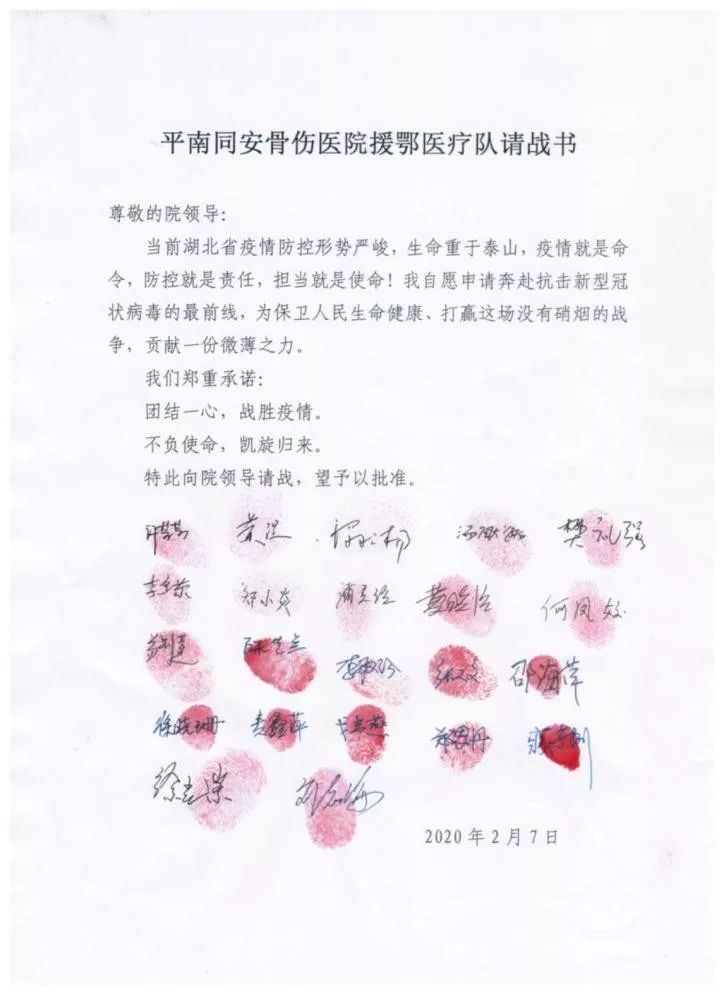 平南同安骨伤医院援鄂医疗队请战书
尊敬的院领导：
当前湖北省疫情防控形势严峻，生命重于泰山，疫情就是命
令，防控就是责任，担当就是使命！我自愿申请奔赴抗击新型冠
状病毒的最前线，为保卫人民生命健康、打赢这场没有硝烟的战
争，贡献一份微薄之力。
我们郑重承诺：
团结一心，战胜疫情。
不负使命，凯旋归来。
特此向院领导请战，望予以批准。
樊礼强
郑小炎 何凤姣
邵海萍
徐晓珊
2020年2月7日